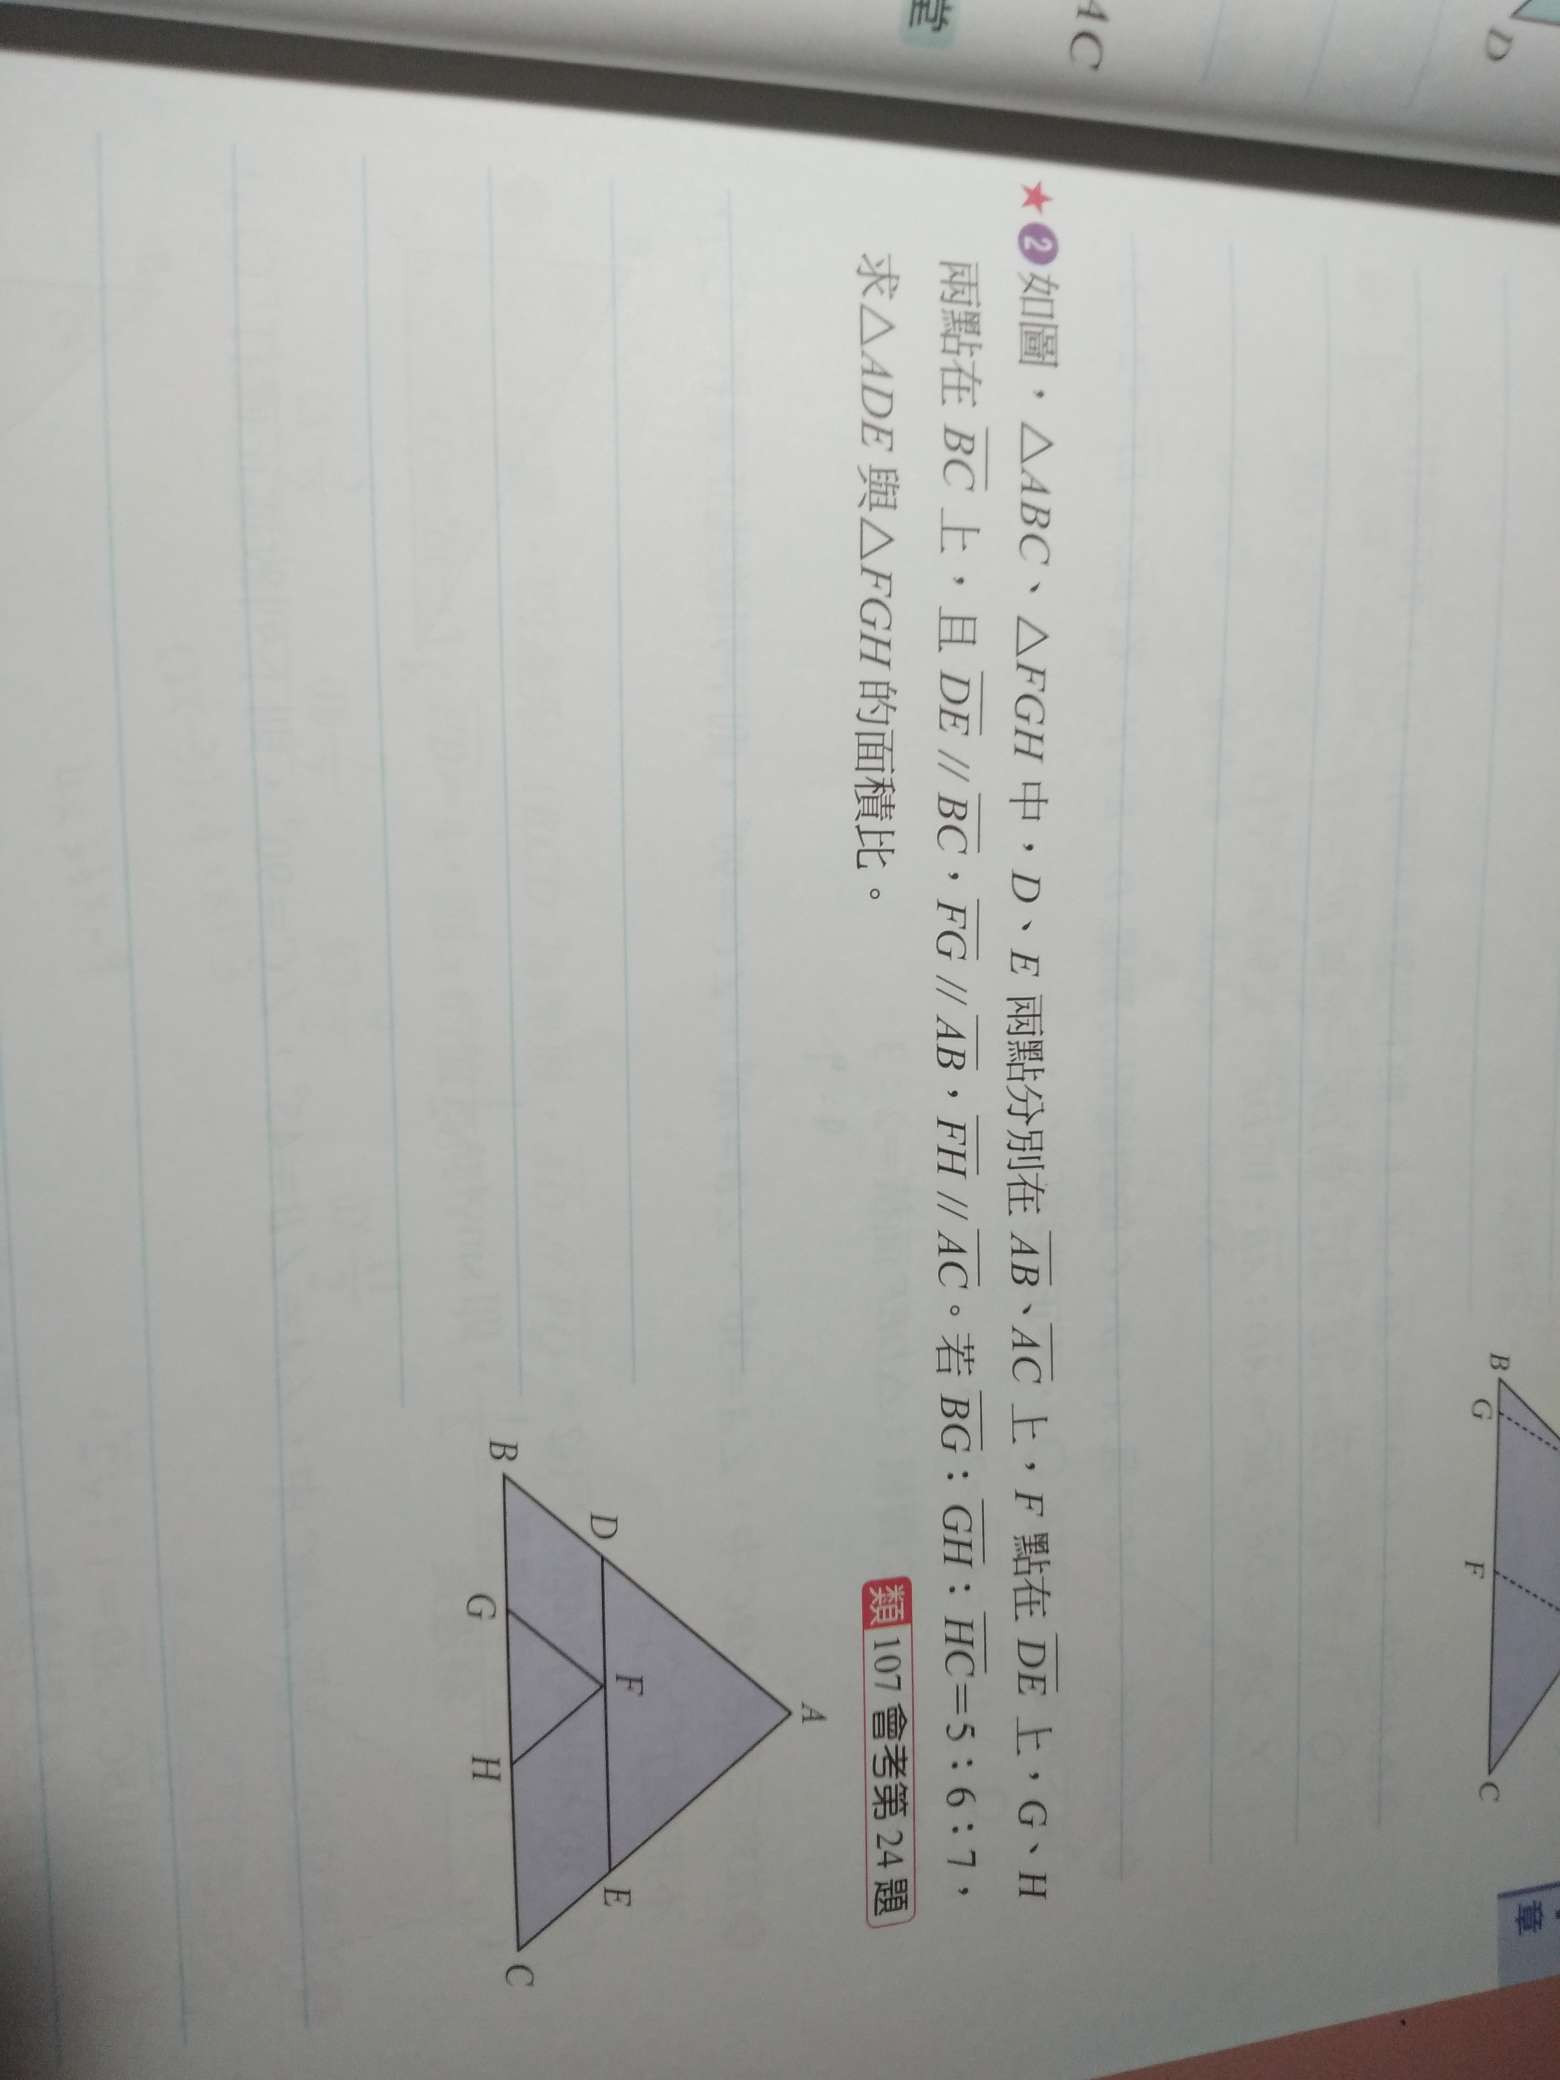 AC
堂
D
B G F C
章
★2如圖，△ABC、△FGH 中，D、E 兩點分別在 AB、AC 上，F 點在 DE 上，G、H
兩點在 BC 上，且 DE // BC，FG // AB，FH // AC。若 BG：GH：HC＝5：6：7，
求△ADE 與△FGH 的面積比。
類 107 會考第 24 題
A
D F E
B G H C